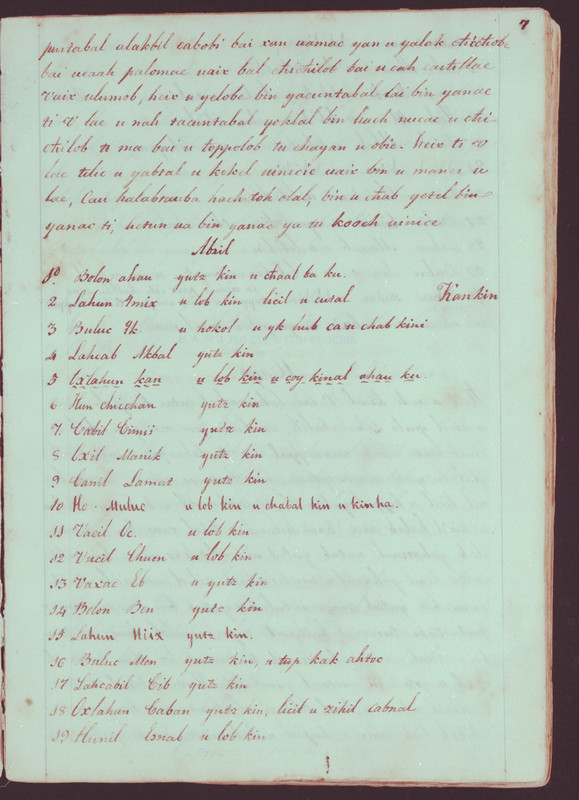 7
puczabal alakbil cabobi bai xan uamac yan u yalak chichobe
bai ucaah palomac uaix bal chichilob bai u cah castillae
Vaix ulumob, heix u yelobe bin yacuntabal lai bin yanac
ti V lae u nah tacuntabal yoklal bin hach nucac u chi
chilob ti ma bai u toppolob tu chayan u obie. heix ti V
lae telic u yabxal u kekel uinicie uaix bin u manes u
lae, Cau halabtauba hach toh olal, bin u chab yezel bin
yanac ti, hetun ua bin yanac ya tu kooch uinice
Abril
1º Bolon ahau yutz kin u chaal ba ku.
2 Lahun Ymix u lob kin licil u cutal Kankin
3 Buluc Yk. u hokol u yk hub ca u chab kini
4 Lahcab Akbal yutz kin
5 Oxlahun kan u lob kin u coy kinal ahau ku.
6 Hun chicchan yutz kin
7. Cabil Cimii yutz kin
8 Oxil Manik yutz kin
9 Canil Lamat yutz kin
10 Ho. Muluc u lob kin u chabal kin u kinha.
11 Vacil Oc. u lob kin
12 Vucil Chuen u lob kin
13 Vaxac Eb u yutz kin
14 Bolon Ben yutz kin
15 Lahun Hiix yutz kin.
16 Buluc Men yutz kin, u tup kak ahtoc
17 Lahcabil Cib yutz kin
18 Oxlahun Caban yutz kin, licil u zihil cabnal
19 Hunil Esnal u lob kin